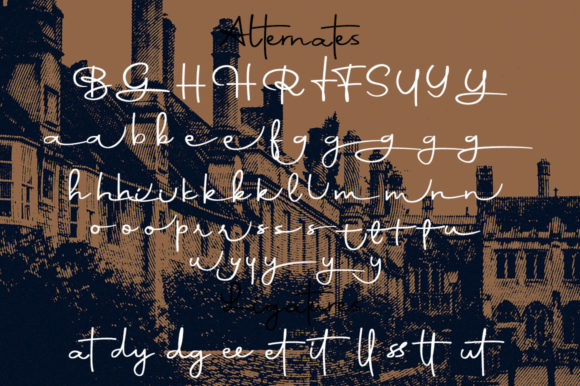 Alternates
B G H H R F F S Y Y Y
a a b b e e e f g g g g g
h h h i k k k k l l m m m n n
o o o p r r s s s t t t t u
w y y y y y
Ligatures
at dy dg ee et it ll ss tt ut